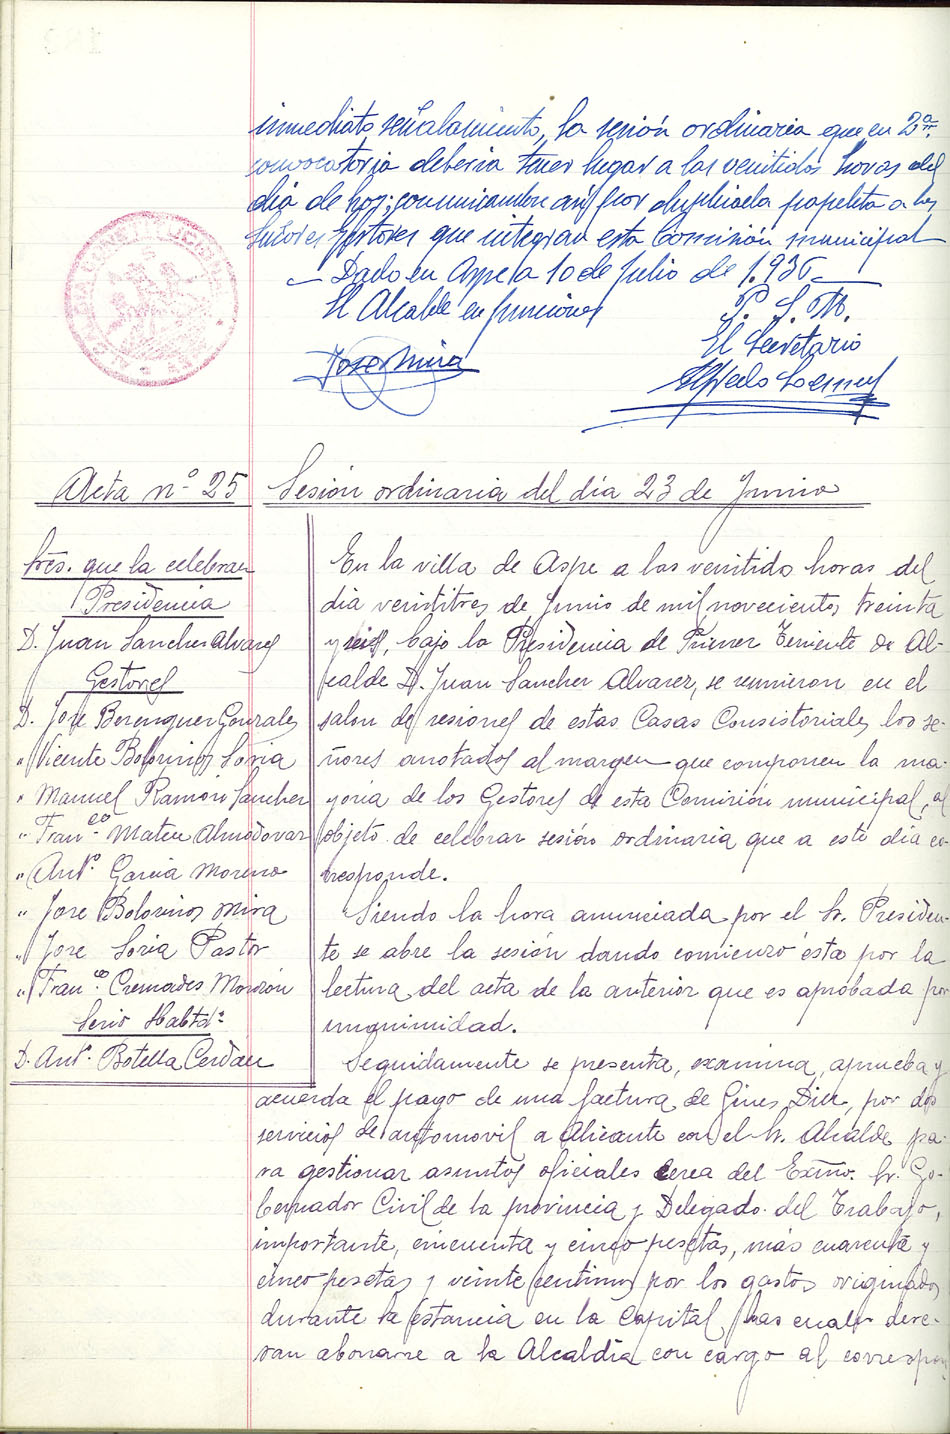 inmediato señalamiento, la sesión ordinaria que en 2ª
convocatoria deberia tener lugar a las ventidos horas del
dia de hoy; comunicandon asi por duplicada papeleta a los
Señores gestores que integran esta Comisión municipal
Dado en Aspe a 10 de Julio de 1.936
El Alcalde en funciones
P. S. M.
El Secretario
José Mira
Alfredo
Acta nº 25
Sesión ordinaria del dia 23 de Junio
Sres. que la celebran
Presidencia
D. Juan Sanchez Alvarez
Gestores
D. Jose Berenguer Gonzales
" Vicente Bolorinos Soria
" Manuel Ramón Sanchez
" Franco. Mateu Almodovar
" Antº. Garcia Moreno
" Jose Bolorinos Mira
" Jose Soria Pastor
" Franco. Cremades Morón
Serio Habtdº
D. Antº. Botella Cerdán
En la villa de Aspe a las ventido horas del
dia ventitres de Junio de mil novecientos treinta
y seis, bajo la Presidencia de Primer Teniente de Al-
calde D. Juan Sanchez Alvarez, se reunieron en el
salon de sesiones de estas Casas Consistoriales los se-
ñores anotados al margen que componen la ma-
yoria de los Gestores de esta Comisión municipal, al
objeto de celebrar sesión ordinaria que a este dia co-
rresponde.
Siendo la hora anunciada por el Sr. Presiden-
te se abre la sesión dando comienzo ésta por la
lectura del acta de la anterior que es aprobada por
unanimidad.
Seguidamente se presenta, examina, aprueba y
acuerda el pago de una factura de Gines Diez, por dos
servicios de automovil a Alicante con el Sr. Alcalde pa-
ra gestionar asuntos oficiales cerca del Exmo. Sr. Go-
bernador Civil de la provincia y Delegado del Trabajo,
importante, cincuenta y cinco pesetas, más cuarenta y
cinco pesetas y veinte centimos por los gastos originados
durante la estancia en la Capital, las cuales deve-
ran abonarse a la Alcaldia con cargo al correspon